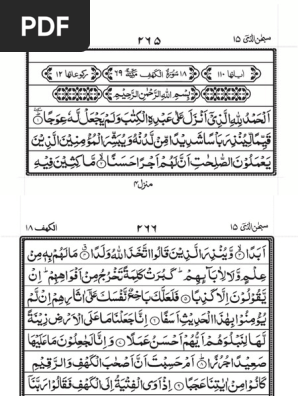 PDF
سبحٰن الذی ۱۵
۲۶۵
اٰیاتها ۱۱۰
۱۸ سُوْرَةُ الْكَهْفِ مَكِّيَّةٌ ۶۹
رکوعاتها ۱۲
بِسْمِ اللّٰهِ الرَّحْمٰنِ الرَّحِيْمِ
اَلْحَمْدُ لِلّٰهِ الَّذِيْۤ اَنْزَلَ عَلٰى عَبْدِهِ الْكِتٰبَ وَلَمْ يَجْعَلْ لَّهٗ عِوَجًا
قَيِّمًا لِّيُنْذِرَ بَاْسًا شَدِيْدًا مِّنْ لَّدُنْهُ وَيُبَشِّرَ الْمُؤْمِنِيْنَ الَّذِيْنَ
يَعْمَلُوْنَ الصّٰلِحٰتِ اَنَّ لَهُمْ اَجْرًا حَسَنًا مَّاكِثِيْنَ فِيْهِ
منزل۴
سبحٰن الذی ۱۵
۲۶۶
الکهف ۱۸
اَبَدًا وَّيُنْذِرَ الَّذِيْنَ قَالُوا اتَّخَذَ اللّٰهُ وَلَدًا مَا لَهُمْ بِهٖ مِنْ
عِلْمٍ وَّلَا لِاٰبَآئِهِمْ كَبُرَتْ كَلِمَةً تَخْرُجُ مِنْ اَفْوَاهِهِمْ اِنْ
يَّقُوْلُوْنَ اِلَّا كَذِبًا فَلَعَلَّكَ بَاخِعٌ نَّفْسَكَ عَلٰۤى اٰثَارِهِمْ اِنْ لَّمْ
يُؤْمِنُوْا بِهٰذَا الْحَدِيْثِ اَسَفًا اِنَّا جَعَلْنَا مَا عَلَى الْاَرْضِ زِيْنَةً
لَّهَا لِنَبْلُوَهُمْ اَيُّهُمْ اَحْسَنُ عَمَلًا وَاِنَّا لَجٰعِلُوْنَ مَا عَلَيْهَا
صَعِيْدًا جُرُزًا اَمْ حَسِبْتَ اَنَّ اَصْحٰبَ الْكَهْفِ وَالرَّقِيْمِ
كَانُوْا مِنْ اٰيٰتِنَا عَجَبًا اِذْ اَوَى الْفِتْيَةُ اِلَى الْكَهْفِ فَقَالُوْا رَبَّنَاۤ